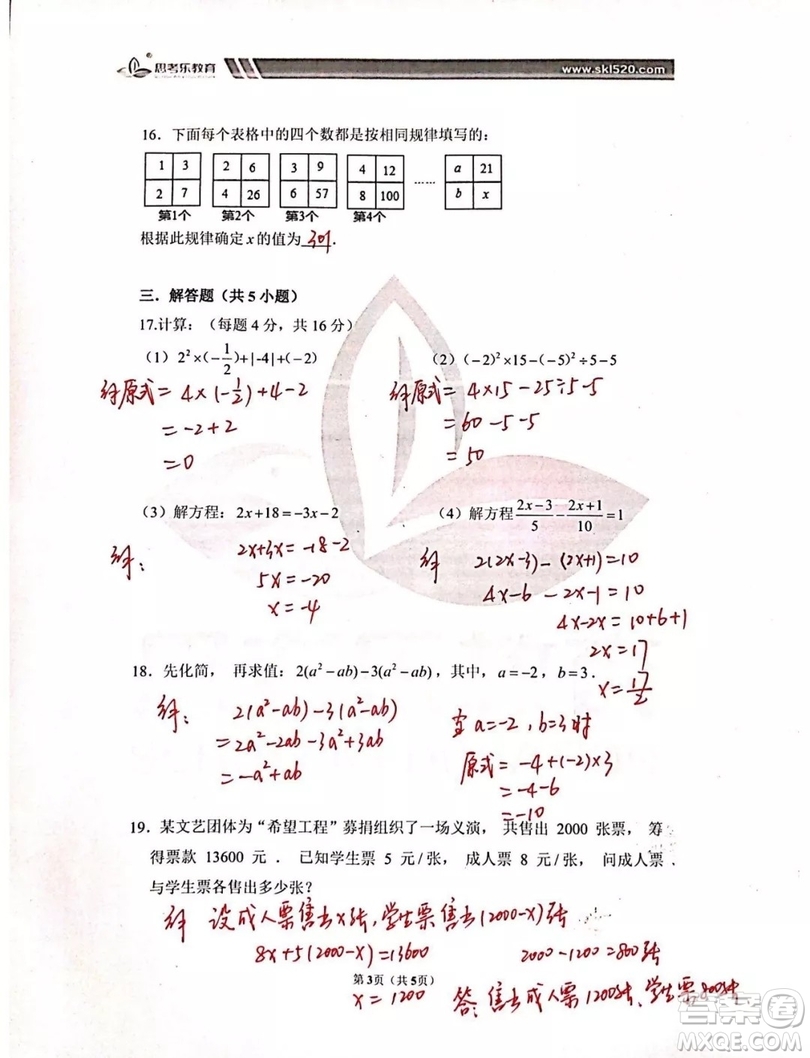 思考乐教育
www.skl520.com
16．下面每个表格中的四个数都是按相同规律填写的：
1 3 2 6 3 9 4 12 …… a 21
2 7 4 26 6 57 8 100 b x
第1个 第2个 第3个 第4个
根据此规律确定 x 的值为 301 .
三．解答题（共 5 小题）
17.计算：（每题 4 分，共 16 分）
（1）2²×(-1/2)+|-4|+(-2) （2）(-2)²×15-(-5)²÷5-5
解原式= 4×(-1/2)+4-2 解原式= 4×15-25÷5-5
= -2+2 = 60-5-5
= 0 = 50
（3）解方程：2x+18=-3x-2 （4）解方程(2x-3)/5-(2x+1)/10=1
解： 2x+3x=-18-2 解 2(2x-3)-(2x+1)=10
5x=-20 4x-6-2x-1=10
x=-4 4x-2x=10+6+1
2x=17
x=17/2
18．先化简， 再求值：2(a²-ab)-3(a²-ab)，其中，a=-2，b=3．
解： 2(a²-ab)-3(a²-ab) 当a=-2，b=3时
=2a²-2ab-3a²+3ab 原式=-4+(-2)×3
=-a²+ab =-4-6
=-10
19．某文艺团体为“希望工程”募捐组织了一场义演， 共售出 2000 张票， 筹
得票款 13600 元 ． 已知学生票 5 元/张， 成人票 8 元/张， 问成人票
与学生票各售出多少张？
解 设成人票售出x张，学生票售出(2000-x)张
8x+5(2000-x)=13600 2000-1200=800张
第 3页（共 5页）
x=1200 答：售出成人票1200张、学生票800张
答案圈
MXQE.COM